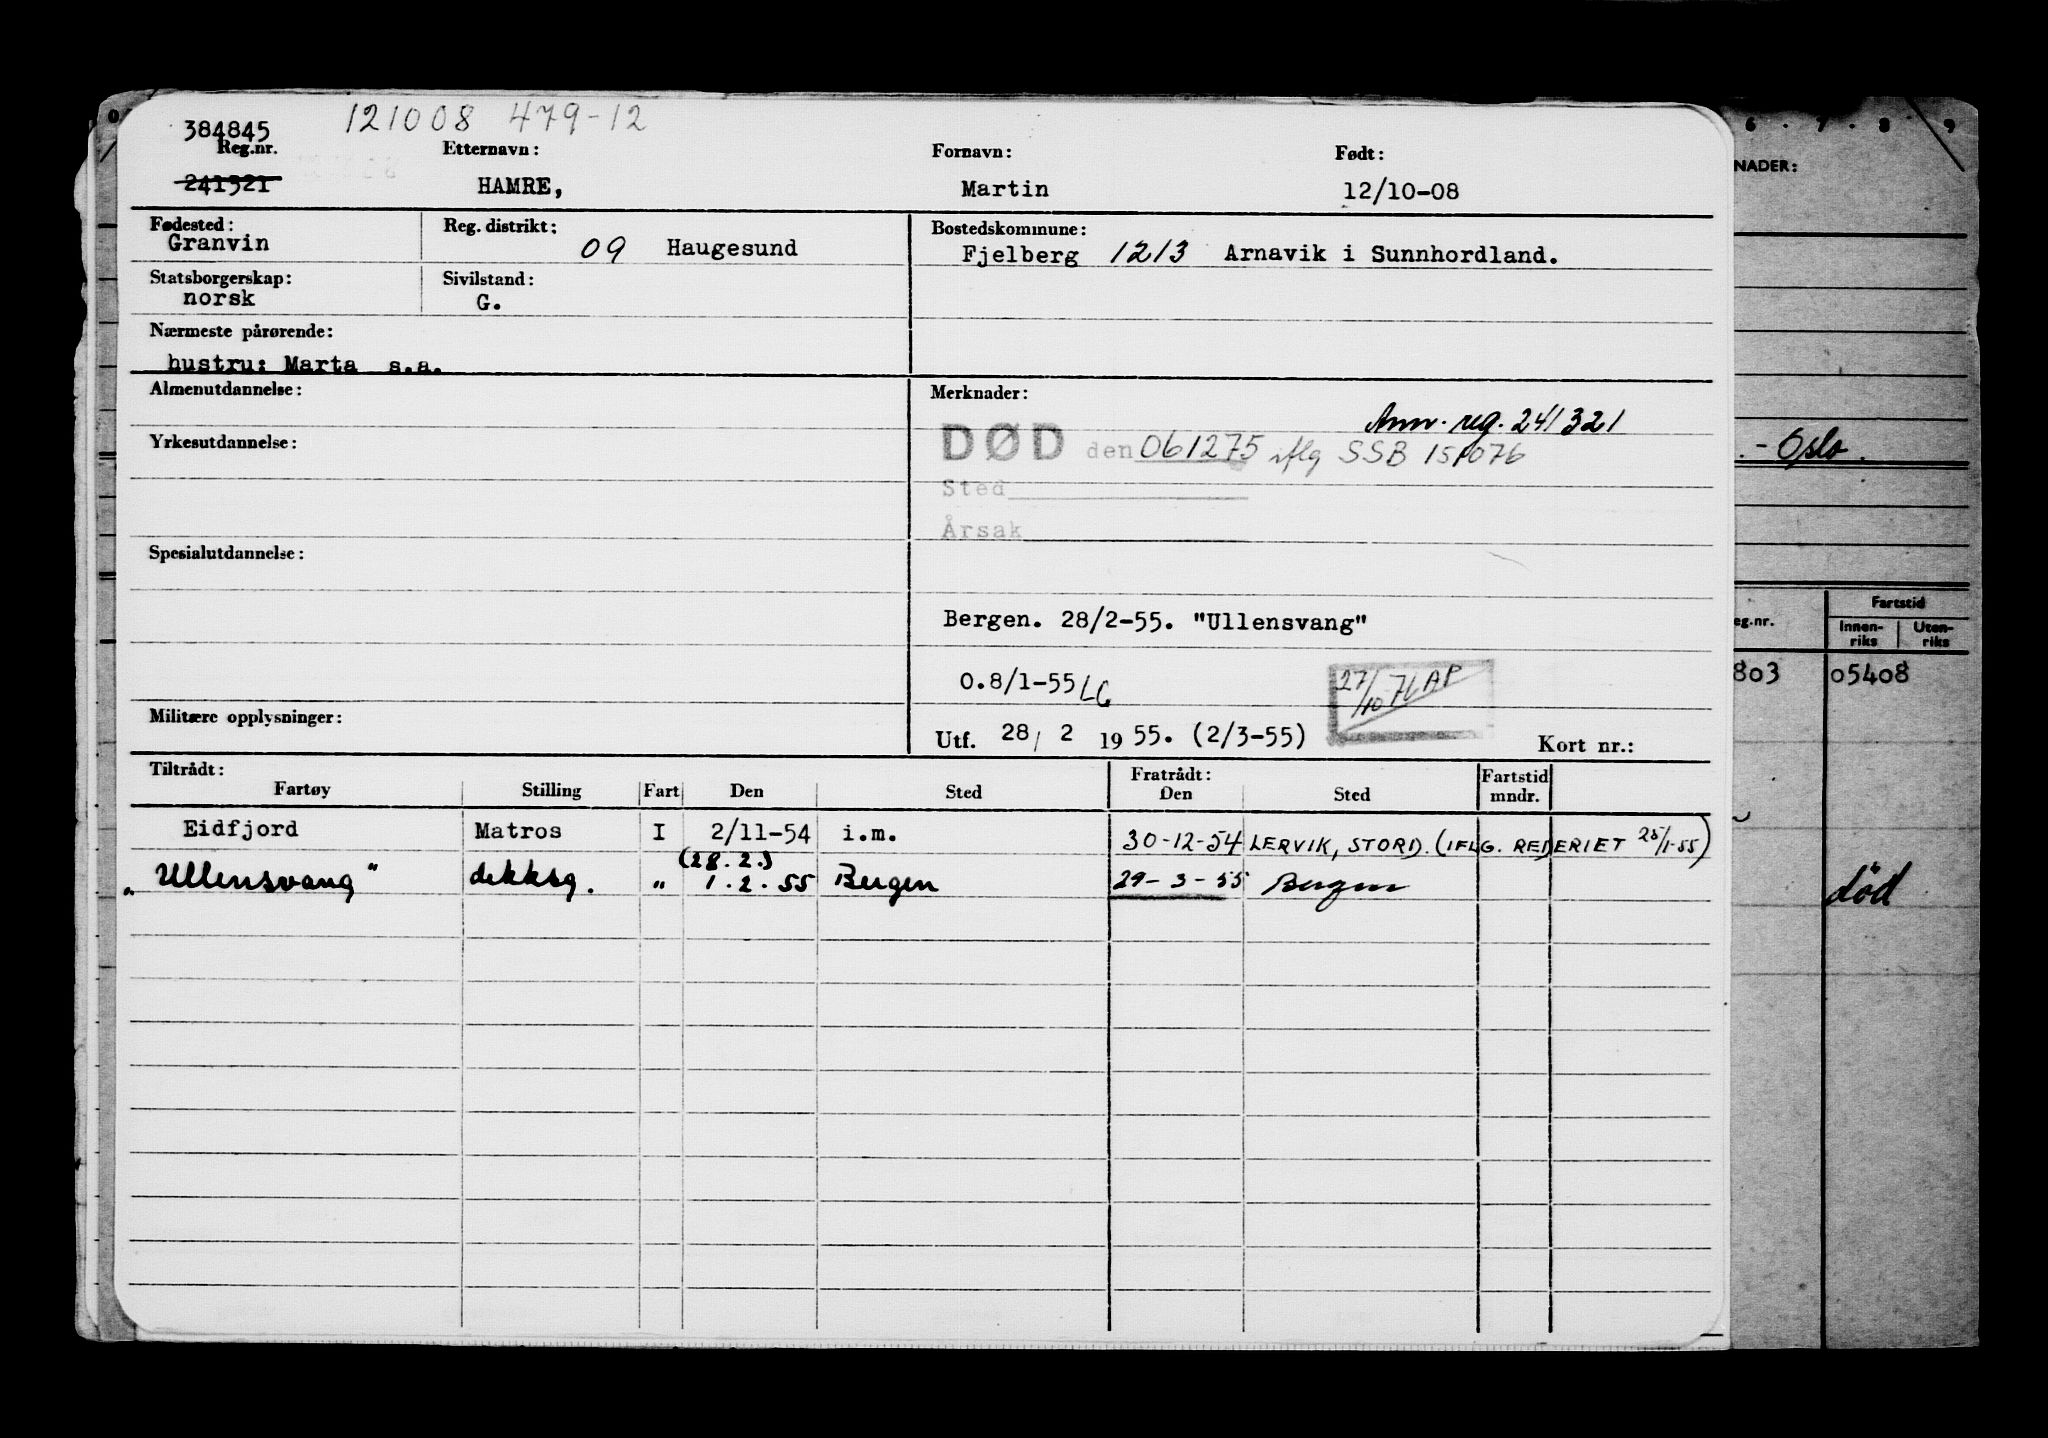 121008 479-12
384845
Reg.nr. Etternavn: Fornavn: Født:
241321 HAMRE, Martin 12/10-08
Fødested: Reg. distrikt: Bostedskommune:
Granvin 09 Haugesund Fjelberg 1213 Arnavik i Sunnhordland.
Statsborgerskap: Sivilstand:
norsk G.
Nærmeste pårørende:
hustru: Marta s.a.
Almenutdannelse: Merknader:
Ann. reg. 241321
Yrkesutdannelse: DØD den 061275 iflg SSB 151076
Sted
Årsak
Spesialutdannelse:
Bergen. 28/2-55. "Ullensvang"
0.8/1-55 LG
27/10 76 AP
Militære opplysninger: Utf. 28/ 2 1955. (2/3-55) Kort nr.:
Tiltrådt: Fratrådt: Fartstid
Fartøy Stilling Fart Den Sted Den Sted mndr.
Eidfjord Matros I 2/11-54 i.m. 30-12-54 LERVIK, STORD. (IFLG. REDERIET 25/1-55)
(28.2.)
"Ullensvang" dekksg. " 1.2.55 Bergen 29-3-55 Bergen
6 . 7 . 8 . 9
NADER:
. - Oslo.
eg.nr. Fartstid
Innen-riks Uten-riks
803 05408
död